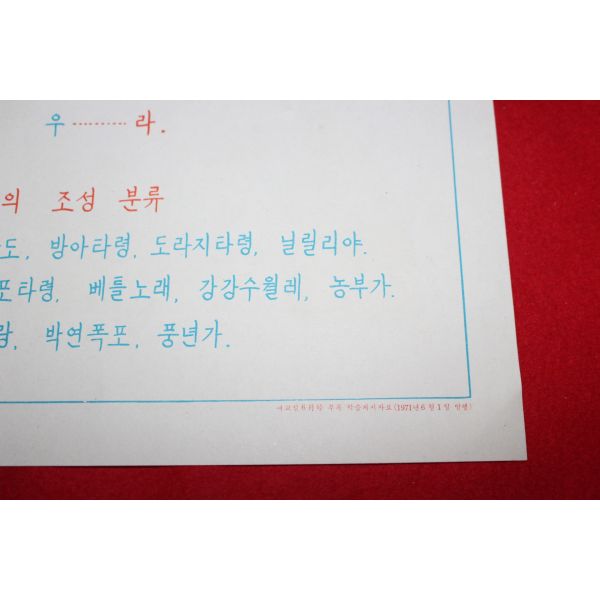 우 ········· 라.
의 조성 분류
도, 방아타령, 도라지타령, 닐릴리야.
포타령, 베틀노래, 강강수월레, 농부가.
랑, 박연폭포, 풍년가.
부록 학습괘지자료 (1971년 6월 1일 발행)